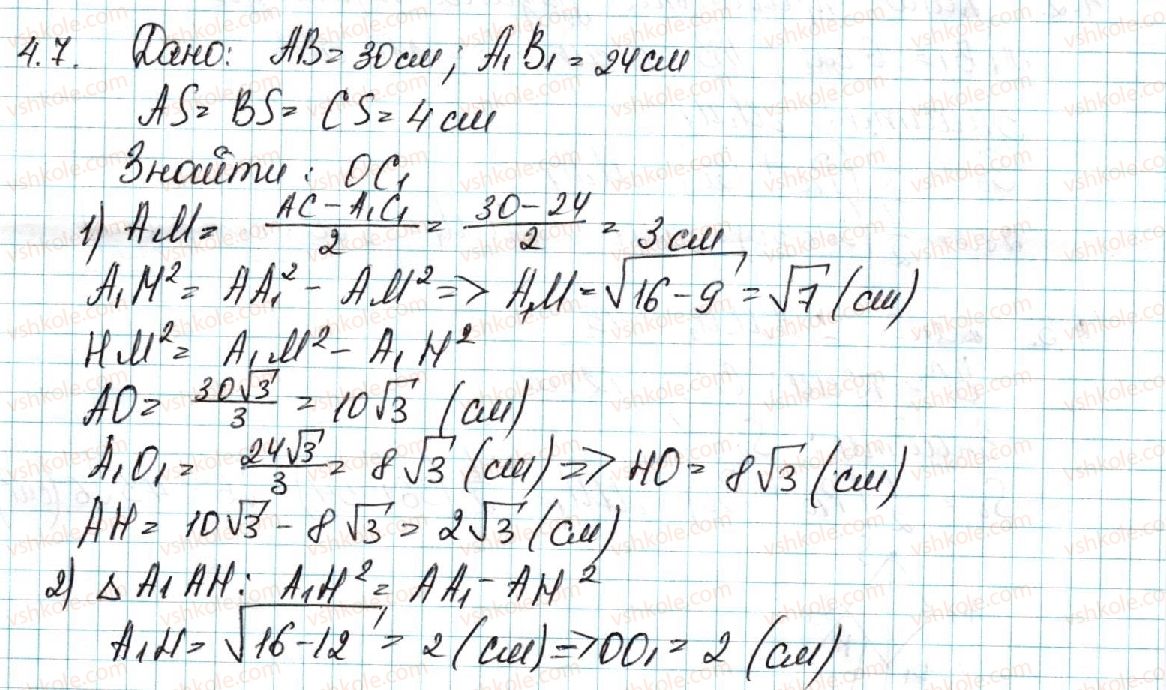 4.7. Дано: AB = 30 см; A₁B₁ = 24 см
AS = BS = CS = 4 см
Знайти: OC₁
1) AM = (AC – A₁C₁)/2 = (30 – 24)/2 = 3 см
A₁M² = AA₁² – AM² => A₁M = √(16 – 9) = √7 (см)
HM² = A₁M² – A₁H²
AO = 30√3/3 = 10√3 (см)
A₁O₁ = 24√3/3 = 8√3 (см) => HO = 8√3 (см)
AH = 10√3 – 8√3 = 2√3 (см)
2) △ A₁AH: A₁H² = AA₁ – AH²
A₁H = √(16 – 12) = 2 (см) => OO₁ = 2 (см)
vshkole.com